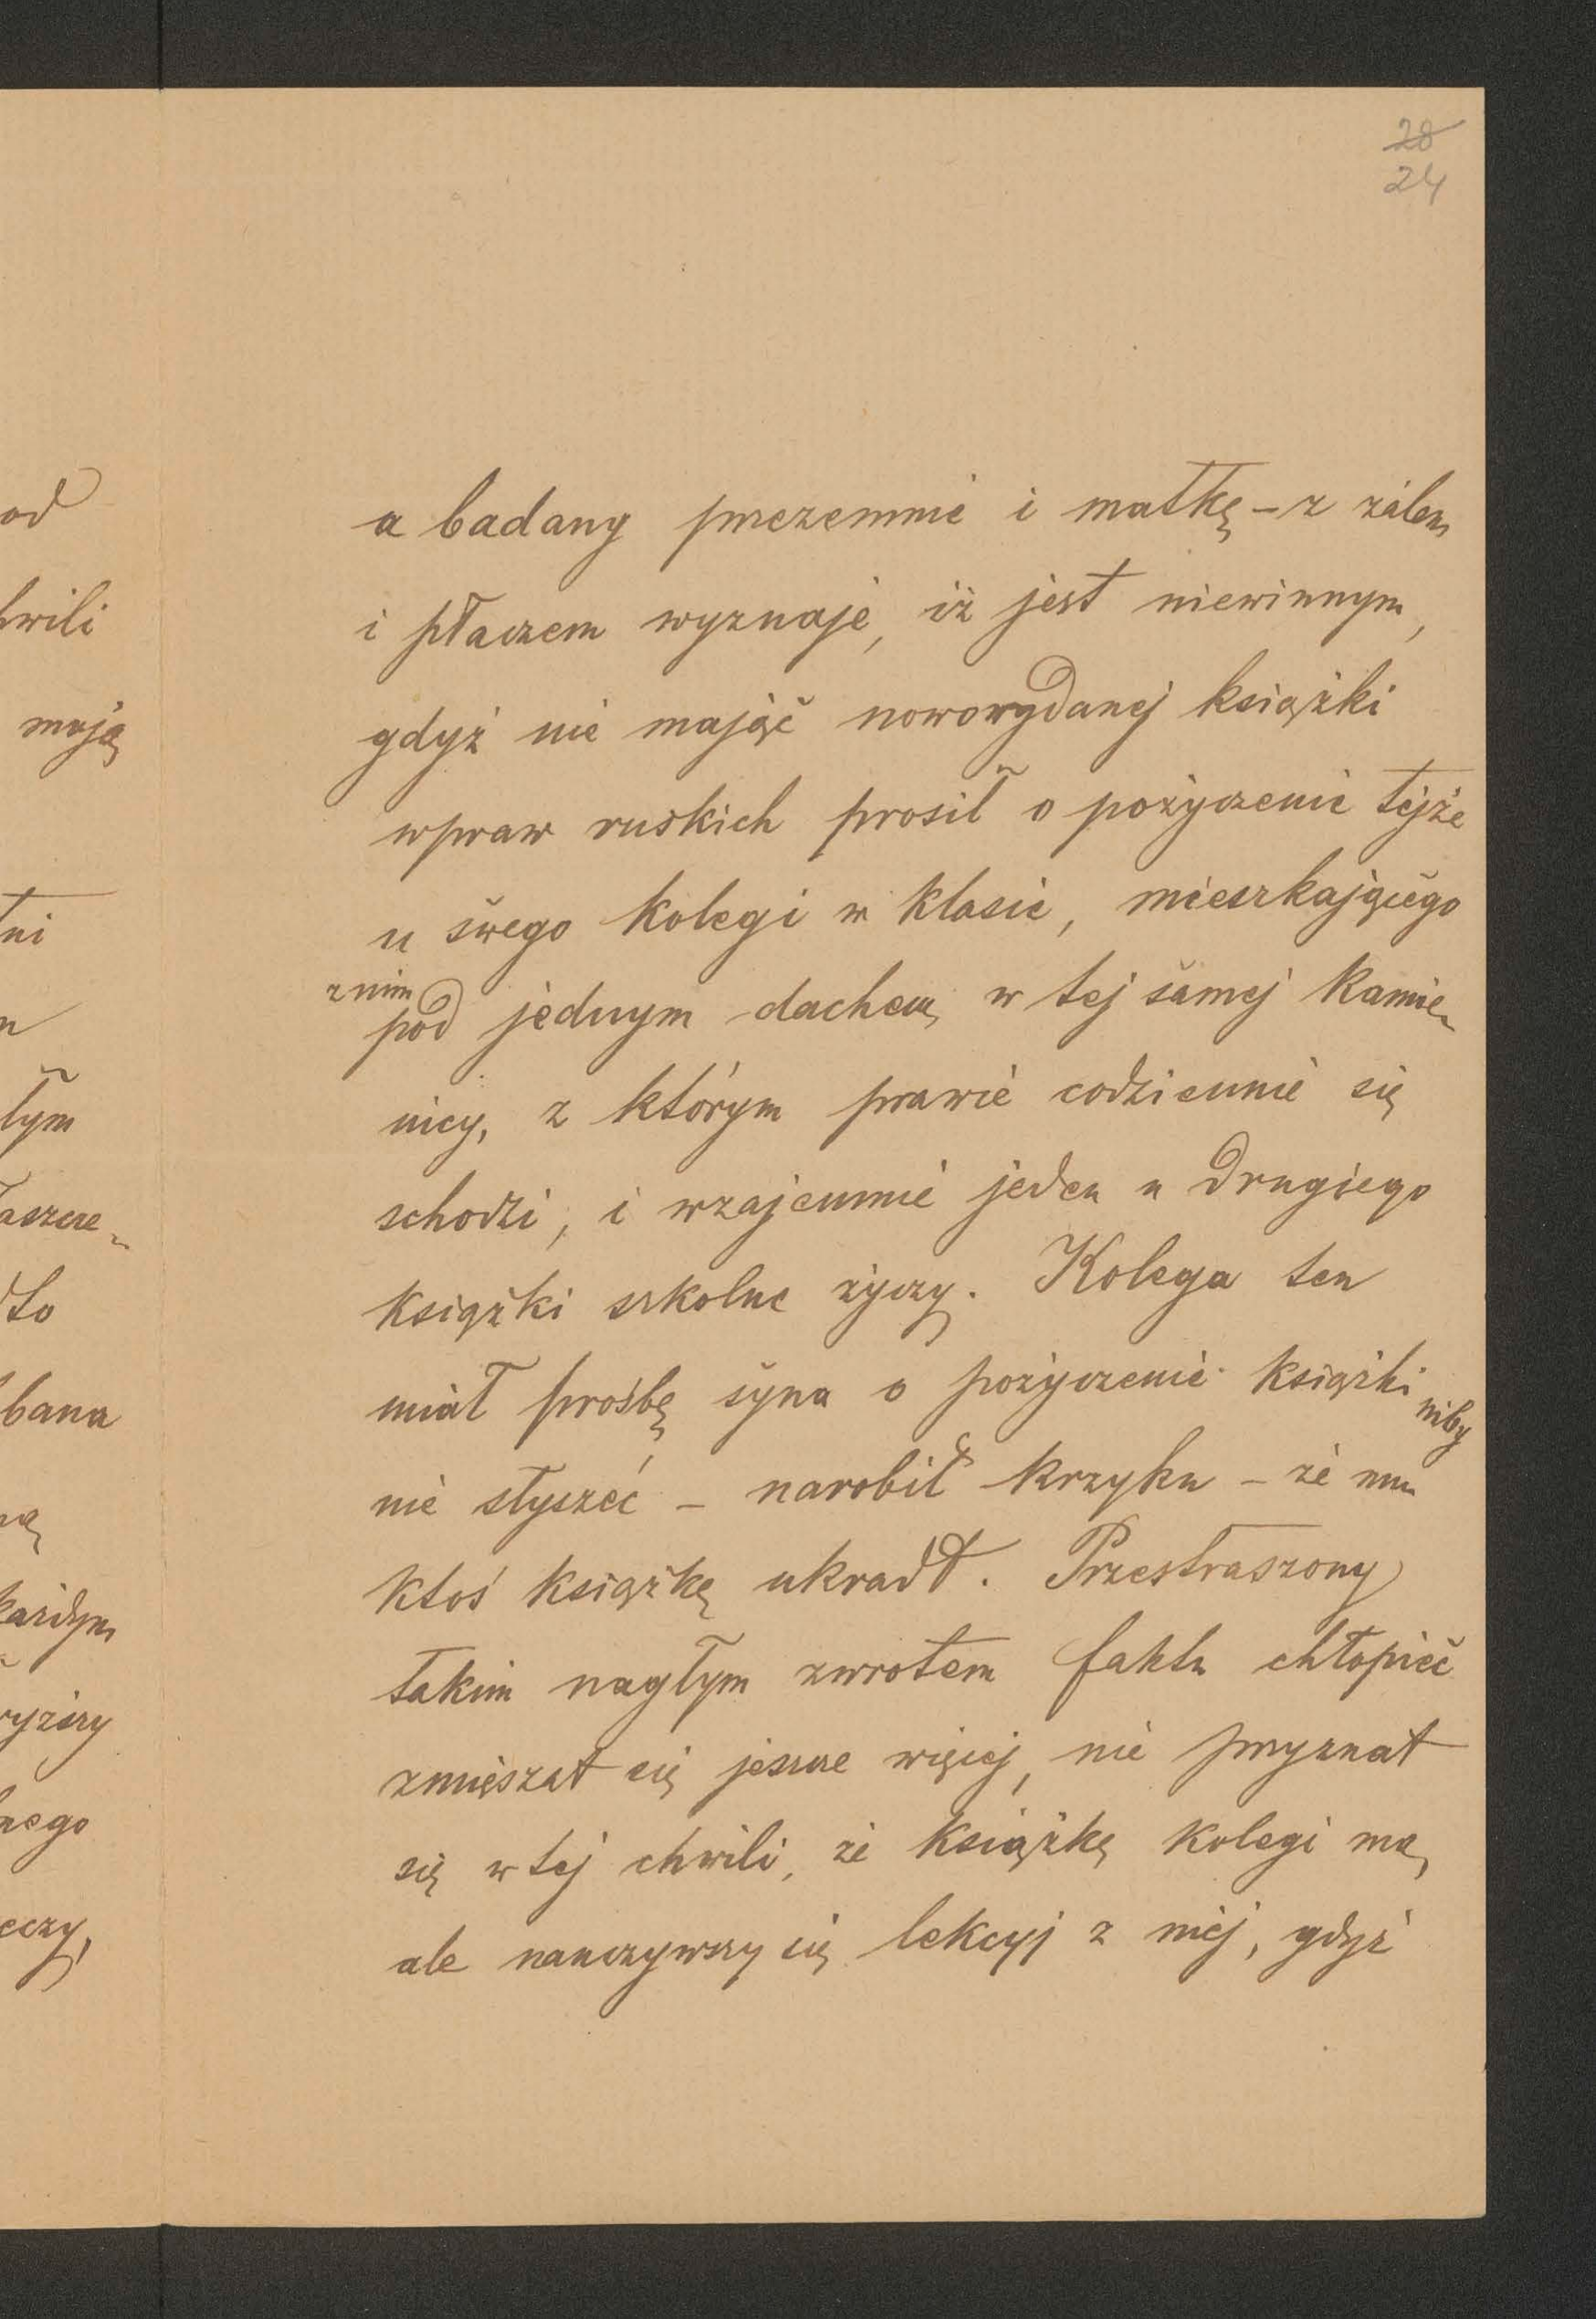 28
24
od
hwili
mają
tni
n
łym
łaszcze-
to
bana
ną
każdym
yższy
nego
eczy,
a badany przezemnie i matkę – z żalem
i płaczem wyznaje, iż jest niewinnym,
gdyż nie mając nowowydanej książki
wpraw ruskich prosił o pożyczenie tejże
u swego kolegi w klasie, mieszkającego
z nim
pod jednym dachem, w tej samej kamie-
nicy, z którym prawie codziennie się
schodzi, i wzajemnie jeden u drugiego
książki szkolne życzy. Kolega ten
miał prośbę syna o pożyczenie książki niby
nie słyszeć – narobił krzyku – że mu
ktoś książkę ukradł. Przestraszony
takim nagłym zwrotem faktu chłopiec
zmięszał się jeszcze więcej, nie przyznał
się w tej chwili, że książkę kolegi ma,
ale nauczywszy się lekcyj z niej, gdyż